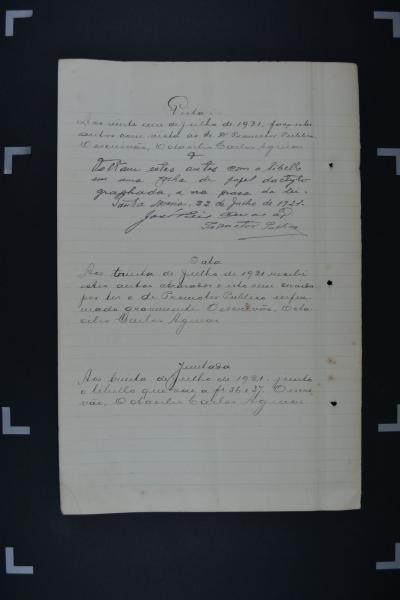 Vista.
Aos vinte um de Julho de 1921, faço estes
autos com vista ao Sr. Dr. Promotor Publico
O escrivão, Octacilio Carlos Aguiar
Voltam estes autos com o libello
em uma folha de papel dactylo
graphada, e na praso da lei.
Santa Maria, 22 de Julho de 1921.
José
Promotor Publico
Data
Aos trinta de Julho de 1921 recebi
estes autos atrazados e isto sem
por ter o Dr. Promotor Publico
mado gravemente. O escrivão, Octa-
cilio Carlos Aguiar
Juntada
Aos trinta de Julho de 1921. junto
o libello que a fs 36 e 37. O escri-
vão, Octacilio Carlos Aguiar